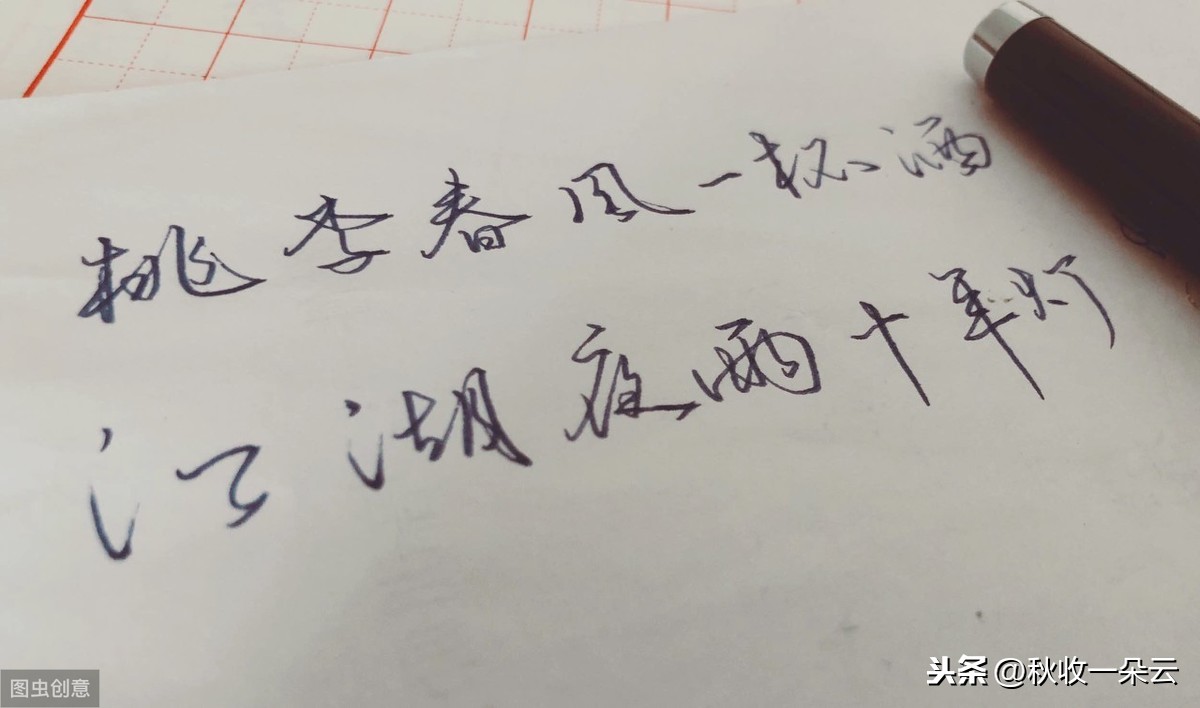 桃李春风一杯酒
江湖夜雨十年灯
图虫创意
头条 @秋收一朵云